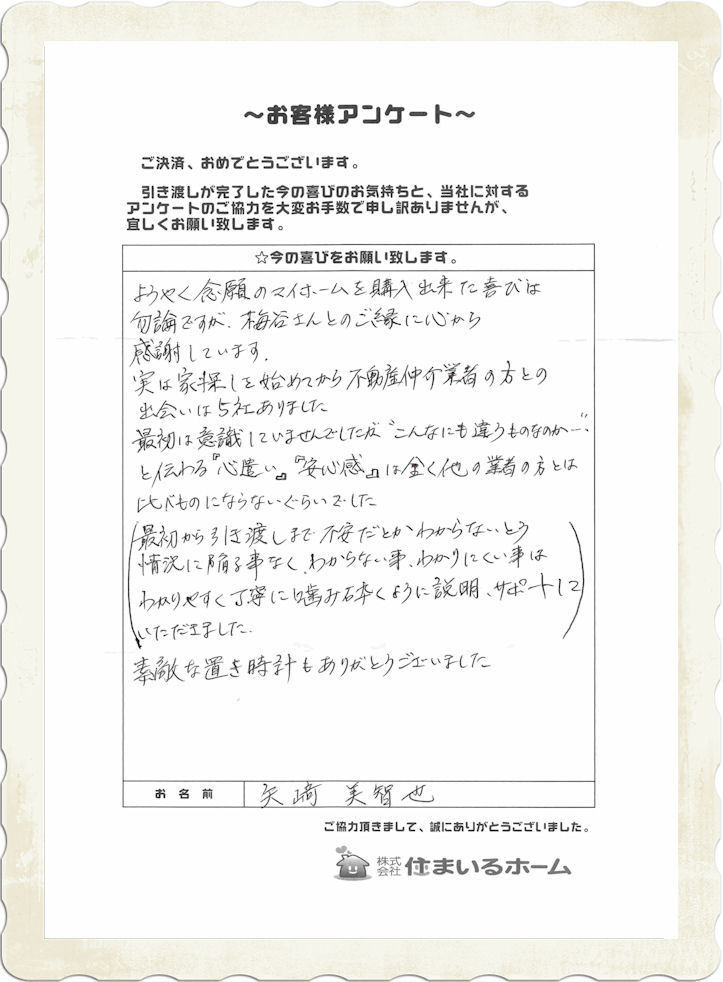 ～お客様アンケート～
ご決済、おめでとうございます。
引き渡しが完了した今の喜びのお気持ちと、当社に対する
アンケートのご協力を大変お手数で申し訳ありませんが、
宜しくお願い致します。
☆今の喜びをお願い致します。
ようやく念願のマイホームを購入出来た喜びは
勿論ですが、梅谷さんとのご縁に心から
感謝しています。
実は家探しを始めてから不動産仲介業者の方との
出会いは5社ありました
最初は意識していませんでしたが“こんなにも違うものなのか…”
と伝わる『心遣い』『安心感』は全く他の業者の方とは
比べものにならないぐらいでした
(最初から引き渡しまで不安だとかわからないとう
情況に陥る事なく、わからない事、わかりにくい事は
わかりやすく丁寧に噛み砕くように説明、サポートして
いただきました.)
素敵な置き時計もありがとうございました
お名前 矢﨑 美智也
ご協力頂きまして、誠にありがとうございました。
株式会社 住まいるホーム